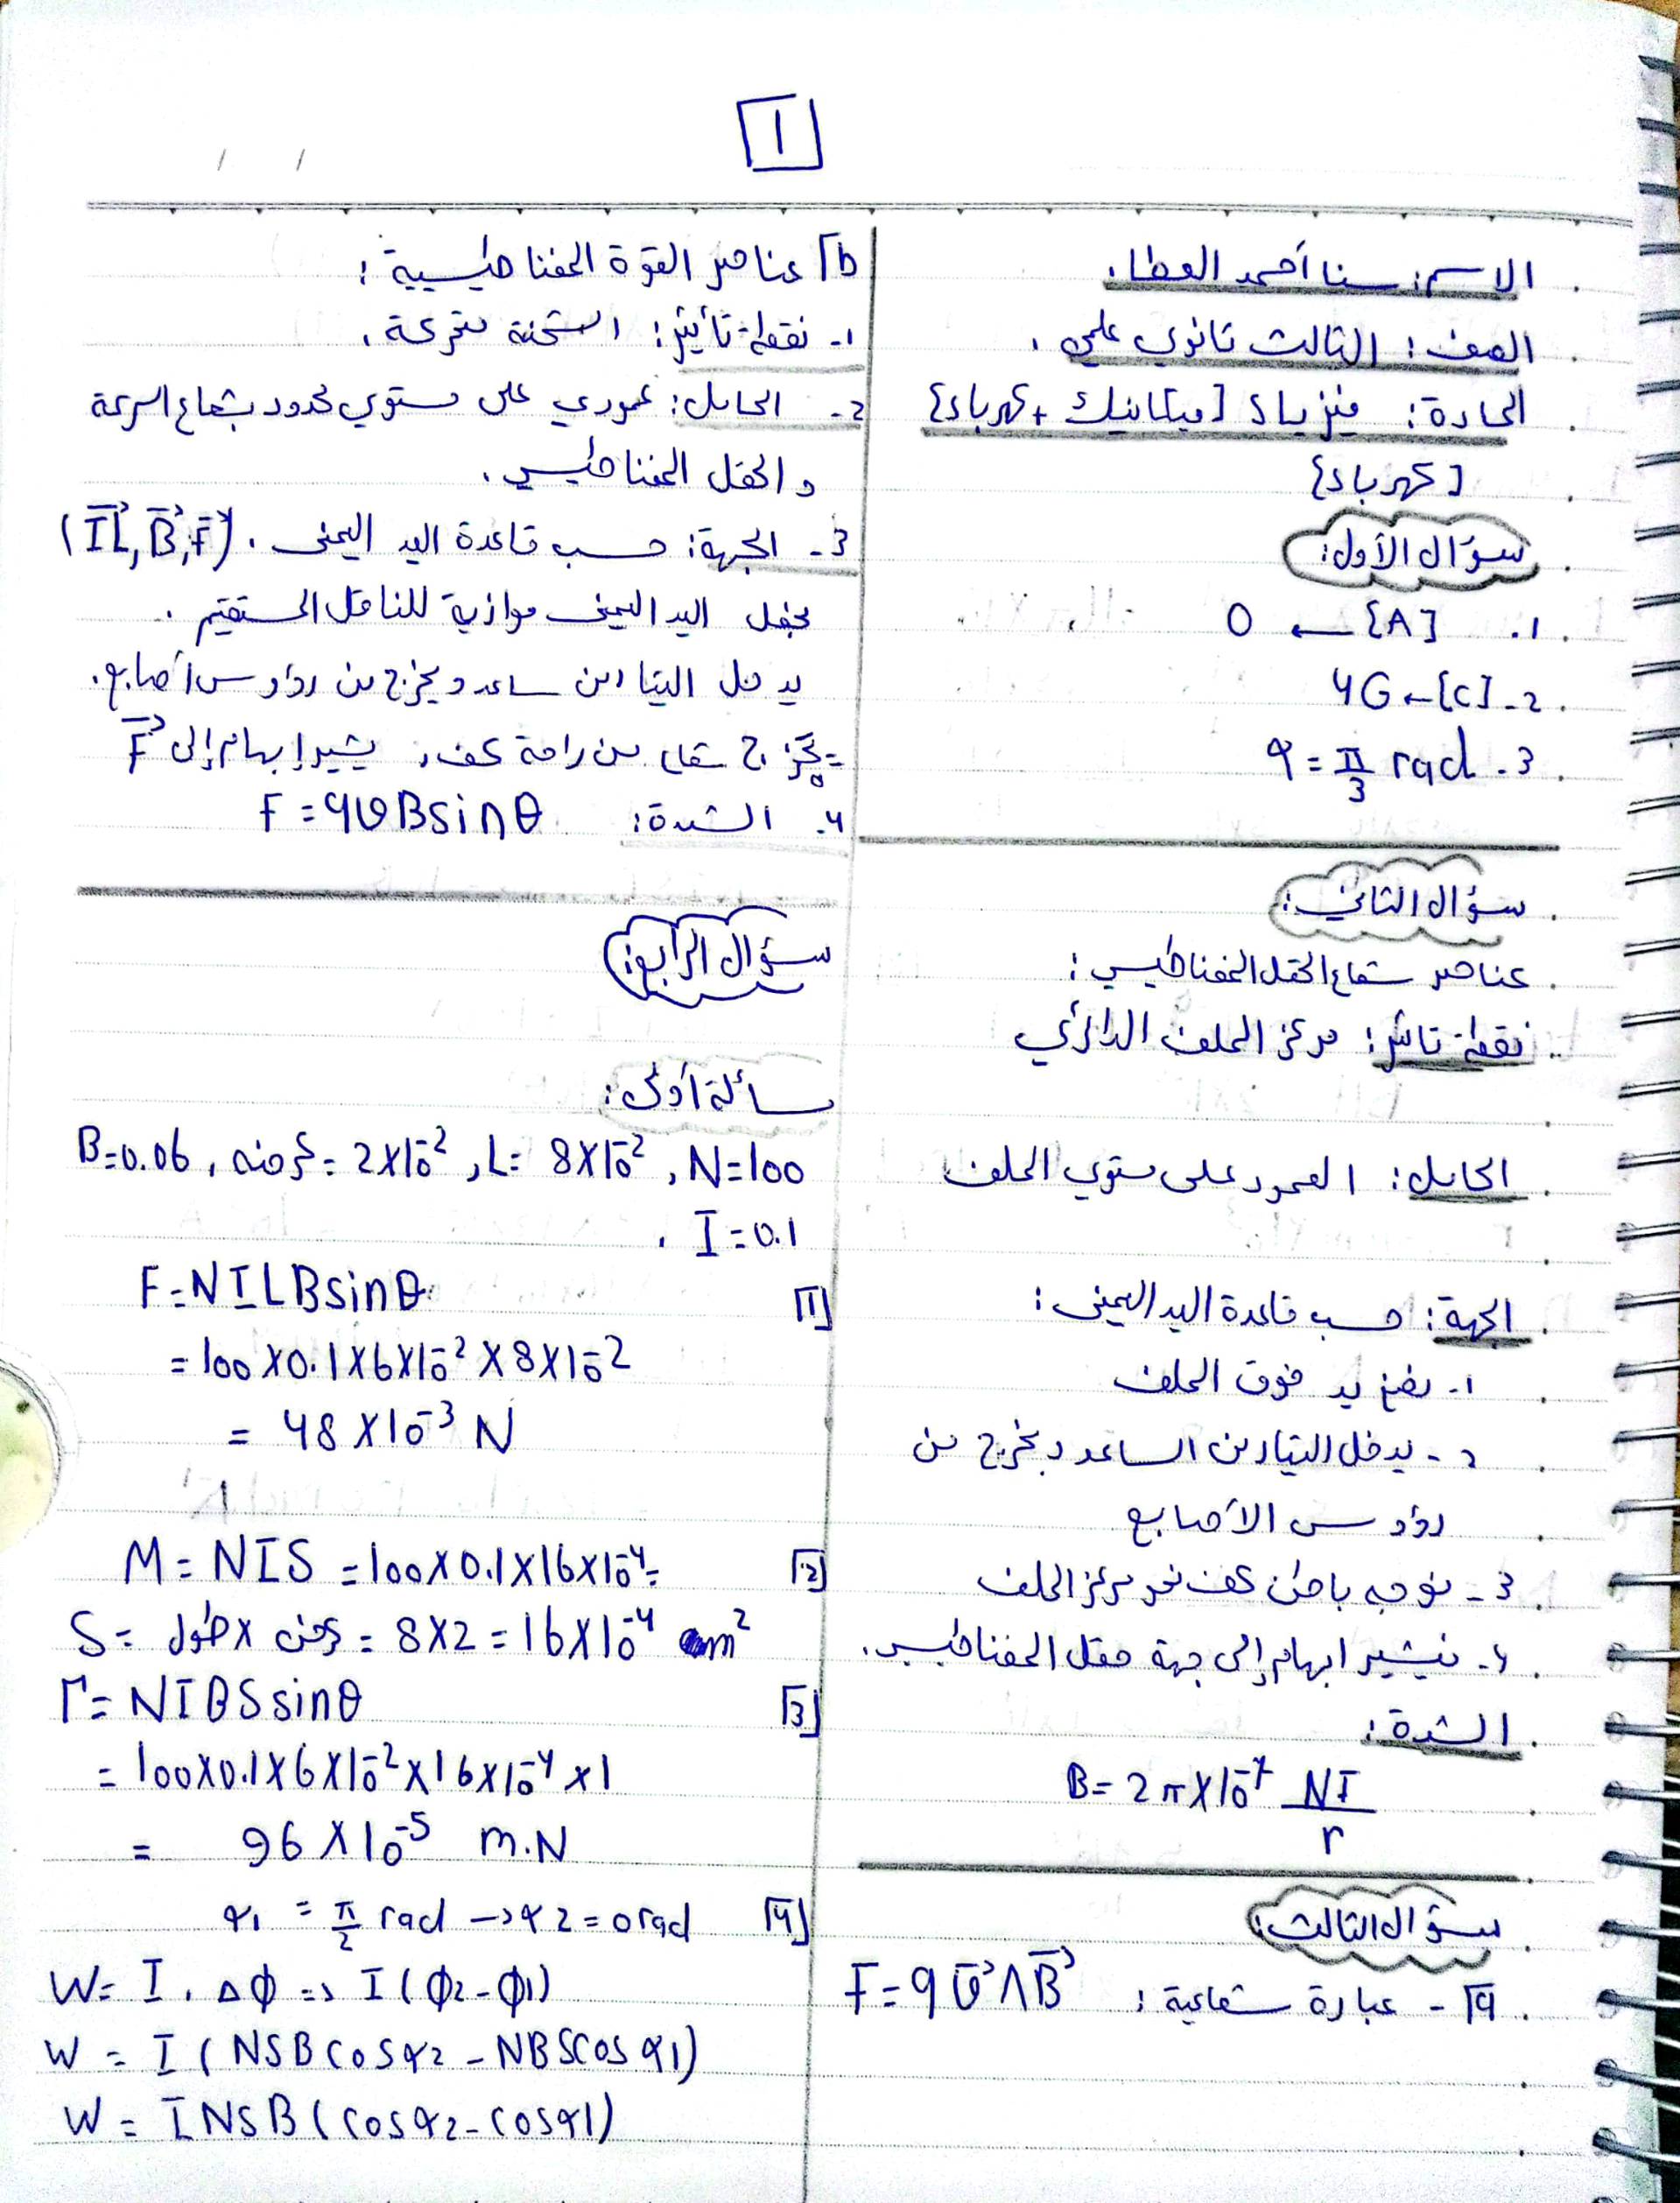 1
الاسم: سنا أحمد العطا.
الصف: الثالث ثانوي علمي.
المادة: فيزياء [ميكانيك + كهرباء]
[كهرباء]
سؤال الأول:
1. [A] ← 0
2- [C] ← 4G
3. α = π/3 rad
سؤال الثاني:
عناصر شعاع الحقل المغناطيسي:
نقطة تاثير: مركز الملف الدائري
الحامل: العمود على مستوي الملف
الجهة: حسب قاعدة اليد اليمنى:
1- نضع يد فوق الملف
2- يدخل التيار من الساعد ويخرج من
رؤوس الأصابع
3- نوجه باطن كف نحو مركز الملف
4- فيشير ابهام إلى جهة حقل المغناطيسي.
الشدة:
B = 2π×10⁻⁷ NI/r
سؤال الثالث:
a - عبارة شعاعية: F = q v⃗ ∧ B⃗
b عناصر القوة المغناطيسية:
1- نقطة تأثير: الشحنة متحركة.
2- الحامل: عمودي على مستوي محدود بشعاع السرعة
و الحقل المغناطيسي.
3- الجهة: حسب قاعدة اليد اليمنى. (IL⃗, B⃗, F⃗)
نجعل اليد اليمنى موازية للناقل المستقيم.
يدخل التيار من ساعد ويخرج من رؤوس أصابع.
يخرج شعاع من راحة كف، يشير إبهام إلى F⃗
4- الشدة: F = qvBsinθ
سؤال الرابع:
مسألة أولى:
B=0.06 , عرضه = 2×10⁻² , L= 8×10⁻² , N=100
I = 0.1 .
1 F = NILBsinθ
= 100×0.1×6×10⁻²×8×10⁻²
= 48×10⁻³ N
2 M = NIS = 100×0.1×16×10⁻⁴=
S = طول × عرض = 8×2 = 16×10⁻⁴ m²
3 Γ = NIBSsinθ
= 100×0.1×6×10⁻²×16×10⁻⁴×1
= 96×10⁻⁵ m.N
4 α1 = π/2 rad → α2 = 0 rad
W = I . Δϕ => I(ϕ2-ϕ1)
W = I(NSBcosα2 - NBScosα1)
W = INSB(cosα2 - cosα1)